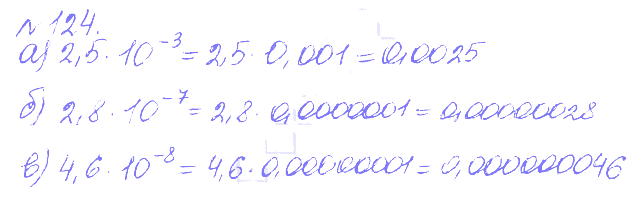 № 124.
а) 2,5 · 10⁻³ = 2,5 · 0,001 = 0,0025
б) 2,8 · 10⁻⁷ = 2,8 · 0,0000001 = 0,00000028
в) 4,6 · 10⁻⁸ = 4,6 · 0,00000001 = 0,000000046